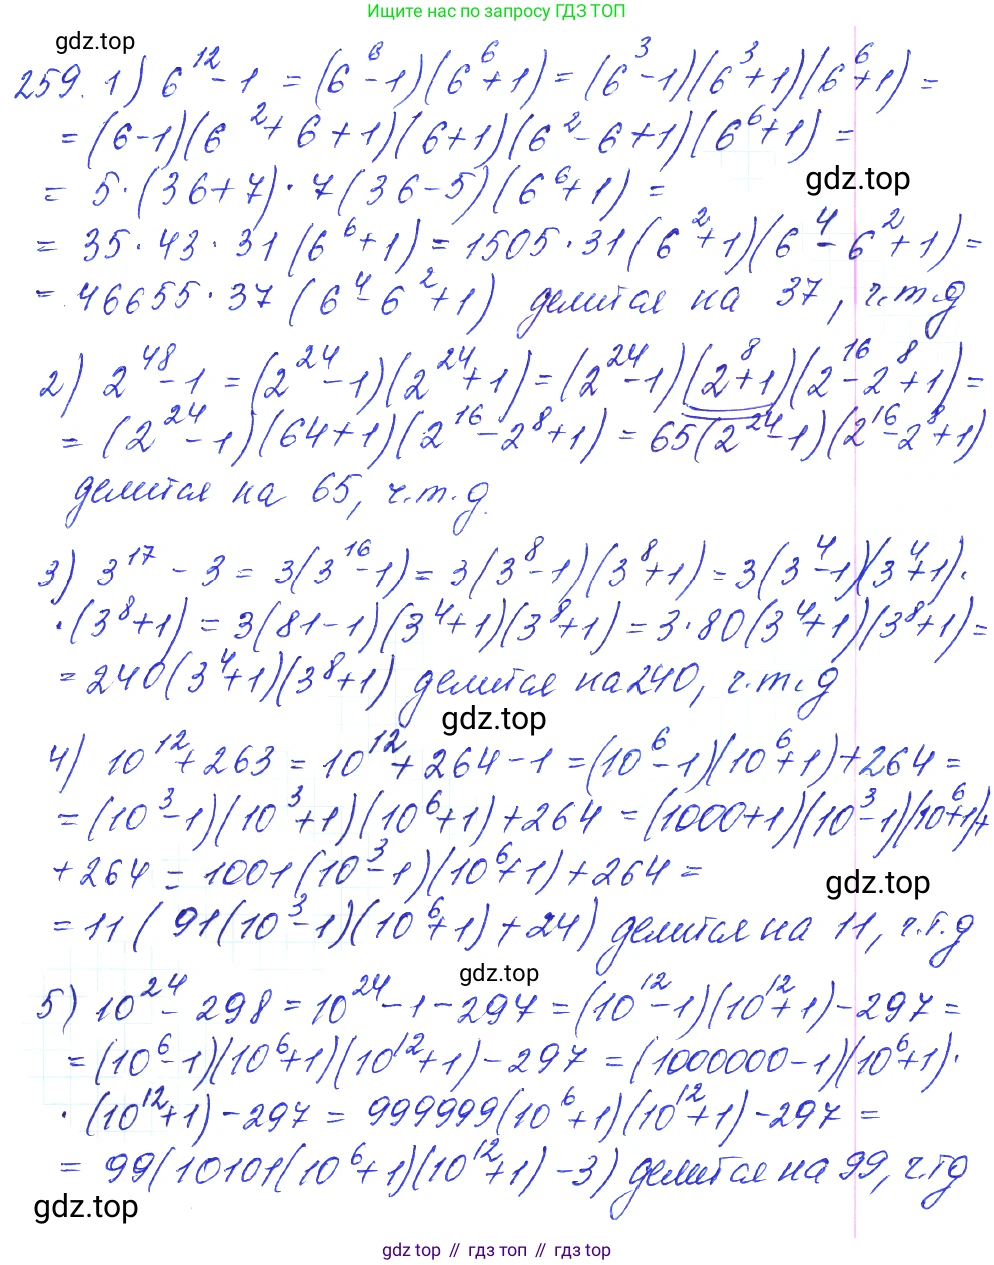 Ищите нас по запросу ГДЗ ТОП
gdz.top
259. 1) 6¹² - 1 = (6⁶ - 1)(6⁶ + 1) = (6³ - 1)(6³ + 1)(6⁶ + 1) =
= (6 - 1)(6² + 6 + 1)(6 + 1)(6² - 6 + 1)(6⁶ + 1) =
gdz.top
= 5 · (36 + 7) · 7(36 - 5)(6⁶ + 1) =
= 35 · 43 · 31(6⁶ + 1) = 1505 · 31(6² + 1)(6⁴ - 6² + 1) =
= 46655 · 37(6⁴ - 6² + 1) делится на 37, ч.т.д
2) 2⁴⁸ - 1 = (2²⁴ - 1)(2²⁴ + 1) = (2²⁴ - 1)(2⁸ + 1)(2¹⁶ - 2⁸ + 1) =
= (2²⁴ - 1)(64 + 1)(2¹⁶ - 2⁸ + 1) = 65(2²⁴ - 1)(2¹⁶ - 2⁸ + 1)
делится на 65, ч.т.д.
3) 3¹⁷ - 3 = 3(3¹⁶ - 1) = 3(3⁸ - 1)(3⁸ + 1) = 3(3⁴ - 1)(3⁴ + 1) ·
· (3⁸ + 1) = 3(81 - 1)(3⁴ + 1)(3⁸ + 1) = 3 · 80(3⁴ + 1)(3⁸ + 1) =
= 240(3⁴ + 1)(3⁸ + 1) делится на 240, ч.т.д
gdz.top
4) 10¹² + 263 = 10¹² + 264 - 1 = (10⁶ - 1)(10⁶ + 1) + 264 =
= (10³ - 1)(10³ + 1)(10⁶ + 1) + 264 = (1000 + 1)(10³ - 1)(10⁶ + 1) +
+ 264 = 1001(10³ - 1)(10⁶ + 1) + 264 =
gdz.top
= 11(91(10³ - 1)(10⁶ + 1) + 24) делится на 11, ч.т.д
gdz.top
5) 10²⁴ - 298 = 10²⁴ - 1 - 297 = (10¹² - 1)(10¹² + 1) - 297 =
= (10⁶ - 1)(10⁶ + 1)(10¹² + 1) - 297 = (1000000 - 1)(10⁶ + 1) ·
· (10¹² + 1) - 297 = 999999(10⁶ + 1)(10¹² + 1) - 297 =
= 99(10101(10⁶ + 1)(10¹² + 1) - 3) делится на 99, ч.тд
gdz.top
gdz top // гдз топ // gdz top